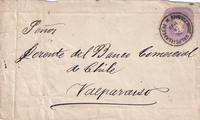 Señor
Gerente del Banco Comercial
de Chile
Valparaiso